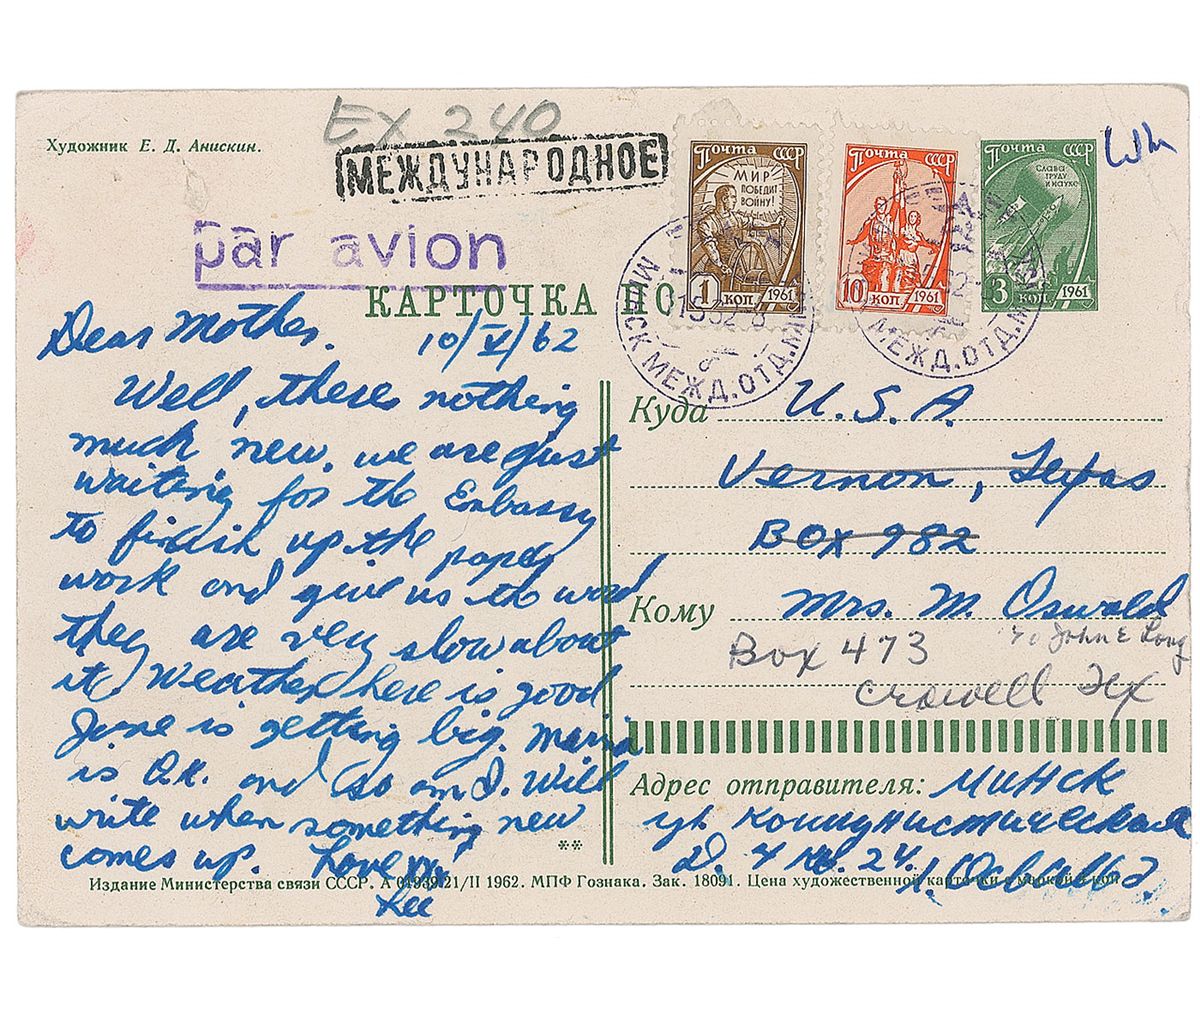 EX 240
Художник Е. Д. Анискин.
МЕЖДУНАРОДНОЕ
par avion
КАРТОЧКА ПО
Почта СССР
МИР ПОБЕДИТ ВОЙНУ!
1 КОП. 1961
Почта СССР
10 КОП. 1961
Почта СССР
СЛАВА ТРУДУ И НАУКЕ
3 КОП. 1961
МИНСК МЕЖД.ОТД.
МЕЖД.ОТД.
Dear Mother. 10/V/62
Well, theres nothing
much new. we are just
waiting for the Enbassy
to finish up the paper
work and give us the word
they are very slow about
it. Weather here is good
June is getting big. Marina
is O.K. and so am I. Will
write when something new
comes up. Love XX
Lee
Куда U.S.A.
Vernon, Texas
BOX 982
Кому Mrs. M. Oswald
Box 473 % John E Long
Crowell Tex
Адрес отправителя: Минск
ул. Коммунистическая
Д. 4 кв. 24. Освальд.
**
Издание Министерства связи СССР. А 01939 21/II 1962. МПФ Гознака. Зак. 18091. Цена художественной карточки с маркой 4 коп